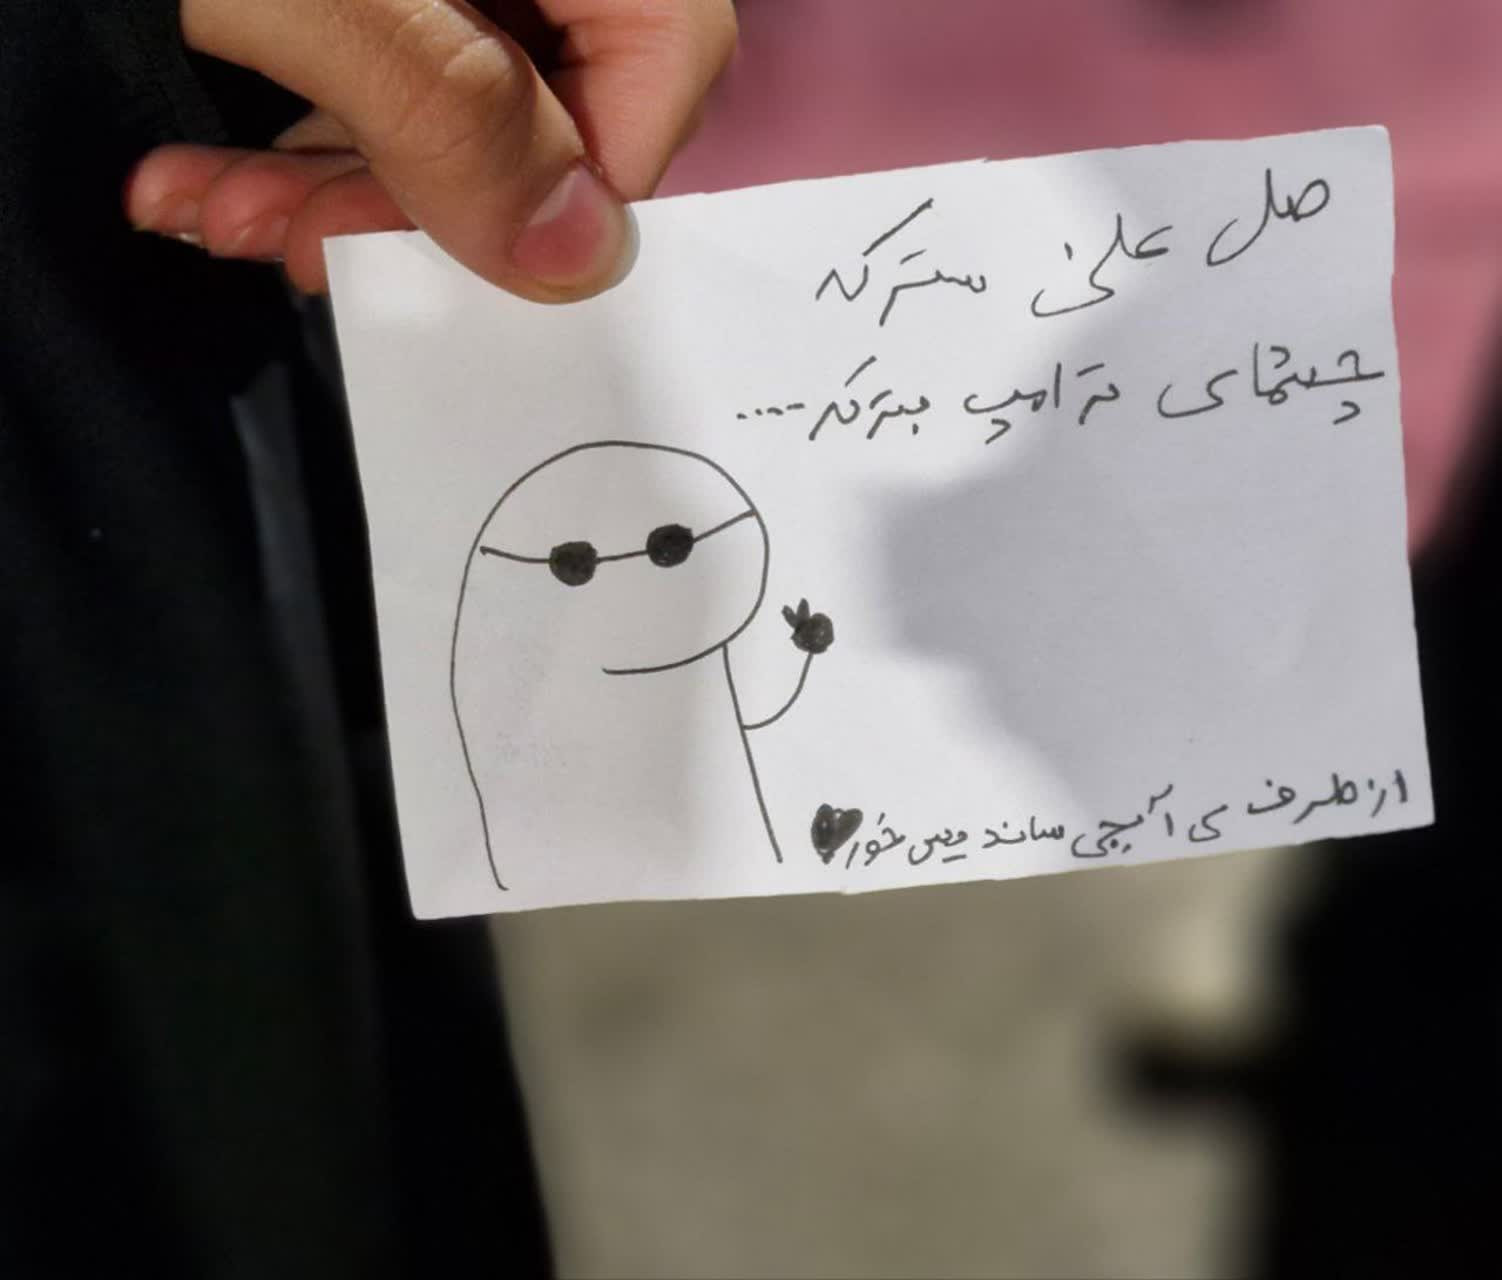 صل علی سترکه
چشمای ترامپ بترکه....
از طرف ی آبجی ساندیس خور